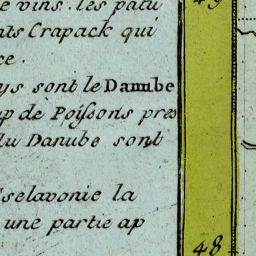 e vins. les patu
ats Crapack qui
ce.
ys sont le Danube
up de Poiſsons pres
du Danube sont
ſselavonie la
une partie ap
49
48